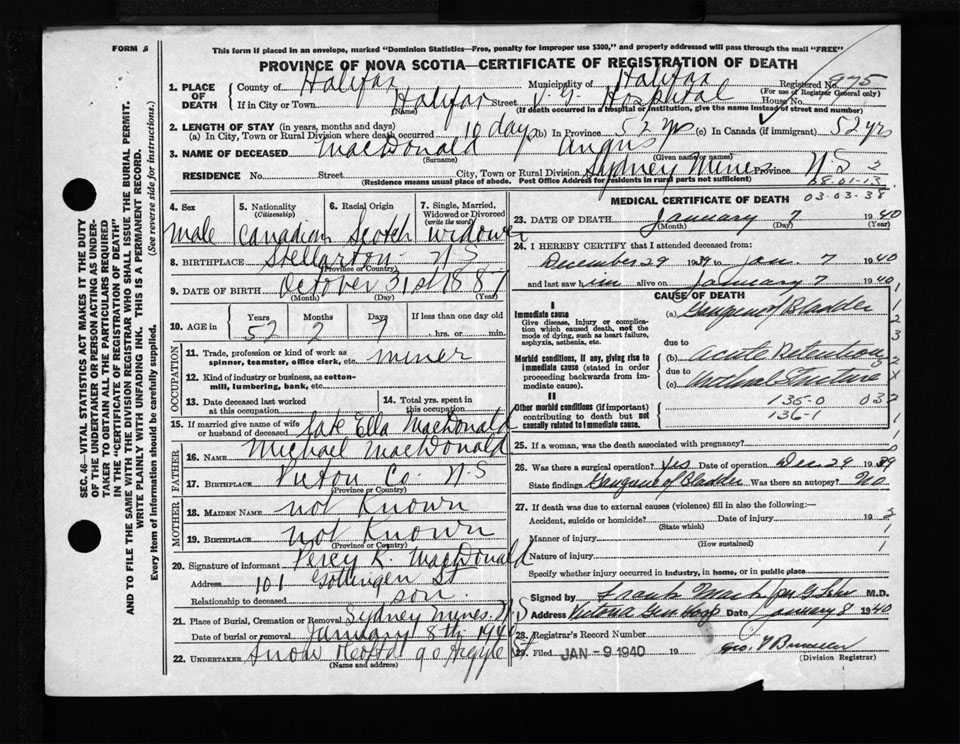 FORM 6
This form if placed in an envelope, marked "Dominion Statistics—Free, penalty for improper use $300," and properly addressed will pass through the mail "FREE"
PROVINCE OF NOVA SCOTIA—CERTIFICATE OF REGISTRATION OF DEATH
SEC. 46—VITAL STATISTICS ACT MAKES IT THE DUTY
OF THE UNDERTAKER OR PERSON ACTING AS UNDER-
TAKER TO OBTAIN ALL THE PARTICULARS REQUIRED
IN THE "CERTIFICATE OF REGISTRATION OF DEATH"
AND TO FILE THE SAME WITH THE DIVISION REGISTRAR WHO SHALL ISSUE THE BURIAL PERMIT.
WRITE PLAINLY WITH UNFADING INK. THIS IS A PERMANENT RECORD.
Every item of information should be carefully supplied. (See reverse side for instructions.)
1. PLACE OF DEATH County of Halifax Municipality of Halifax Registered No. 975
(For use of Registrar General only)
If in City or Town Halifax Street V.G. Hospital House No.
(Name) (If death occurred in a hospital or institution, give the name instead of street and number)
2. LENGTH OF STAY (in years, months and days)
(a) In City, Town or Rural Division where death occurred 10 days (b) In Province 52 yrs (c) In Canada (if immigrant) 52 yrs
3. NAME OF DECEASED MacDonald Angus
(Surname) (Given name or names)
RESIDENCE No. Street City, Town or Rural Division Sydney Mines Province N-S 2
(Residence means usual place of abode. Post Office Address for residents in rural parts not sufficient)
68-01-13
03-03-38
4. Sex male
5. Nationality (Citizenship) Canadian
6. Racial Origin Scotch
7. Single, Married, Widowed or Divorced (write the word) widower
8. BIRTHPLACE Stellarton N-S
(Province or Country)
9. DATE OF BIRTH October 31st 1887
(Month) (Day) (Year)
10. AGE in Years 52 Months 2 Days 7 If less than one day old hrs. or min.
OCCUPATION
11. Trade, profession or kind of work as spinner, teamster, office clerk, etc. miner
12. Kind of industry or business, as cotton-mill, lumbering, bank, etc.
13. Date deceased last worked at this occupation
14. Total yrs. spent in this occupation
15. If married give name of wife or husband of deceased late Ella MacDonald
FATHER
16. NAME Michael MacDonald
17. BIRTHPLACE Pictou Co N-S
(Province or Country)
MOTHER
18. MAIDEN NAME not Known
19. BIRTHPLACE not Known
(Province or Country)
20. Signature of informant Percy R. MacDonald
Address 101 Gottingen St
Relationship to deceased son
21. Place of Burial, Cremation or Removal Sydney Mines. N.S
Date of burial or removal January 8th 1940
22. UNDERTAKER Snow
(Name and address)
MEDICAL CERTIFICATE OF DEATH
23. DATE OF DEATH January 7 1940
(Month) (Day) (Year)
24. I HEREBY CERTIFY that I attended deceased from:
December 29 1939 to Jan. 7 1940
and last saw him alive on January 7 1940
CAUSE OF DEATH
I
Immediate cause
Give disease, injury or complication which caused death, not the mode of dying, such as heart failure, asphyxia, asthenia, etc.
(a) Gangrene of Bladder
due to
Morbid conditions, if any, giving rise to immediate cause (stated in order proceeding backwards from immediate cause).
(b) Acute Retention
due to
(c) Urethral Stricture
II
Other morbid conditions (if important) contributing to death but not causally related to immediate cause.
135-0 032
136-1
25. If a woman, was the death associated with pregnancy?
26. Was there a surgical operation? Yes Date of operation Dec. 29 1939
State findings Gangrene of Bladder Was there an autopsy? No
27. If death was due to external causes (violence) fill in also the following:—
Accident, suicide or homicide? Date of injury 19
(State which)
Manner of injury
(How sustained)
Nature of injury
Specify whether injury occurred in industry, in home, or in public place
Signed by Frank M.D.
Address Victoria Gen Hosp Date January 8 1940
28. Registrar's Record Number
29. Filed JAN -9 1940 19
(Division Registrar)